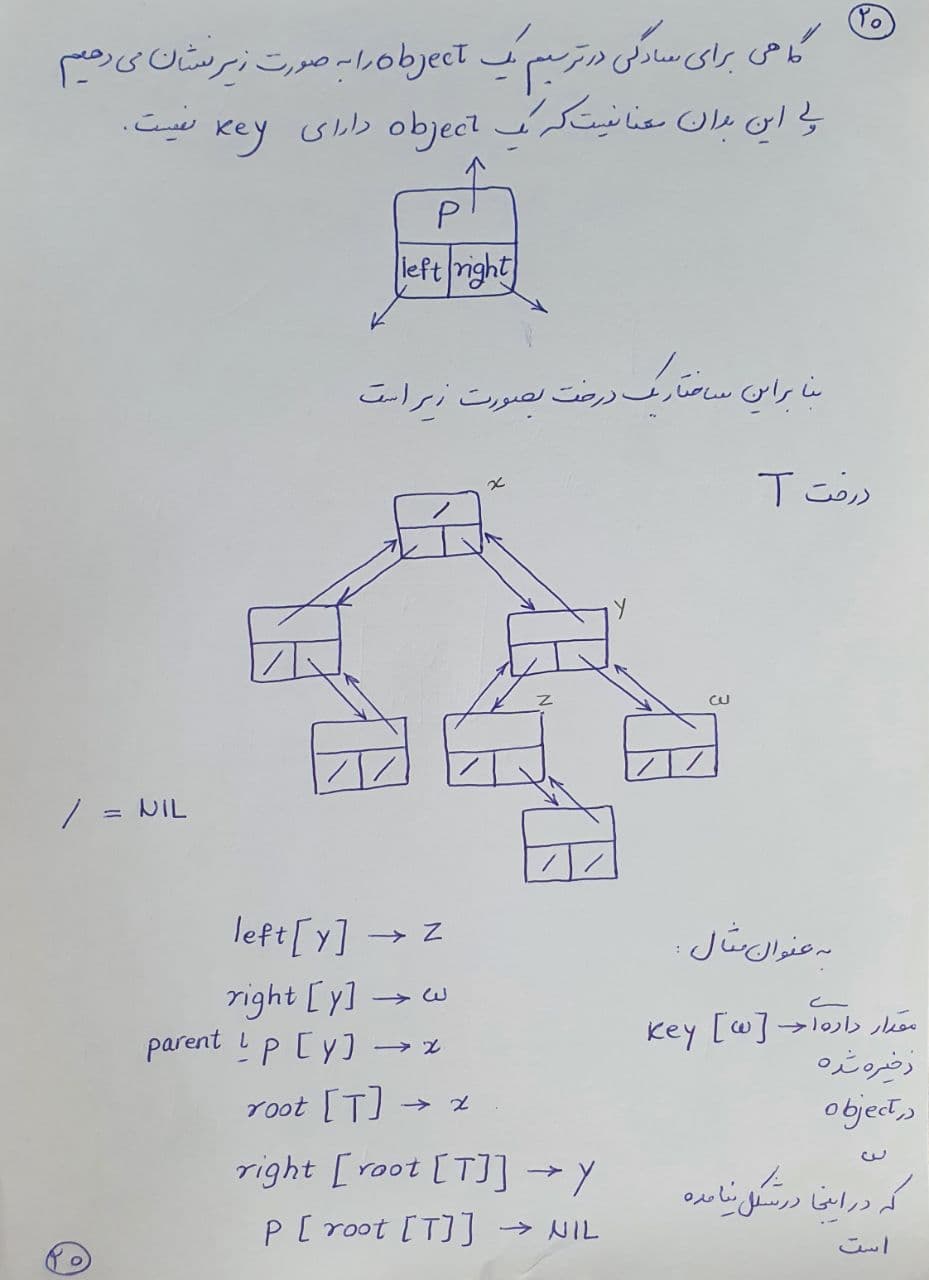 ۲۰
گاهی برای سادگی در ترسیم یک object را به صورت زیر نشان می دهیم
ولی این بدان معنا نیست که یک object دارای key نیست.
P
left right
بنابراین ساختار یک درخت بصورت زیر است
درخت T
x
y
z
ω
/ = NIL
left[y] → z
right[y] → ω
parent یا p[y] → x
root[T] → x
right[root[T]] → y
P[root[T]] → NIL
به عنوان مثال:
key[ω] → مقدار داده ای
ذخیره شده
در object
ω
که در اینجا در شکل نیامده
است
۲۰